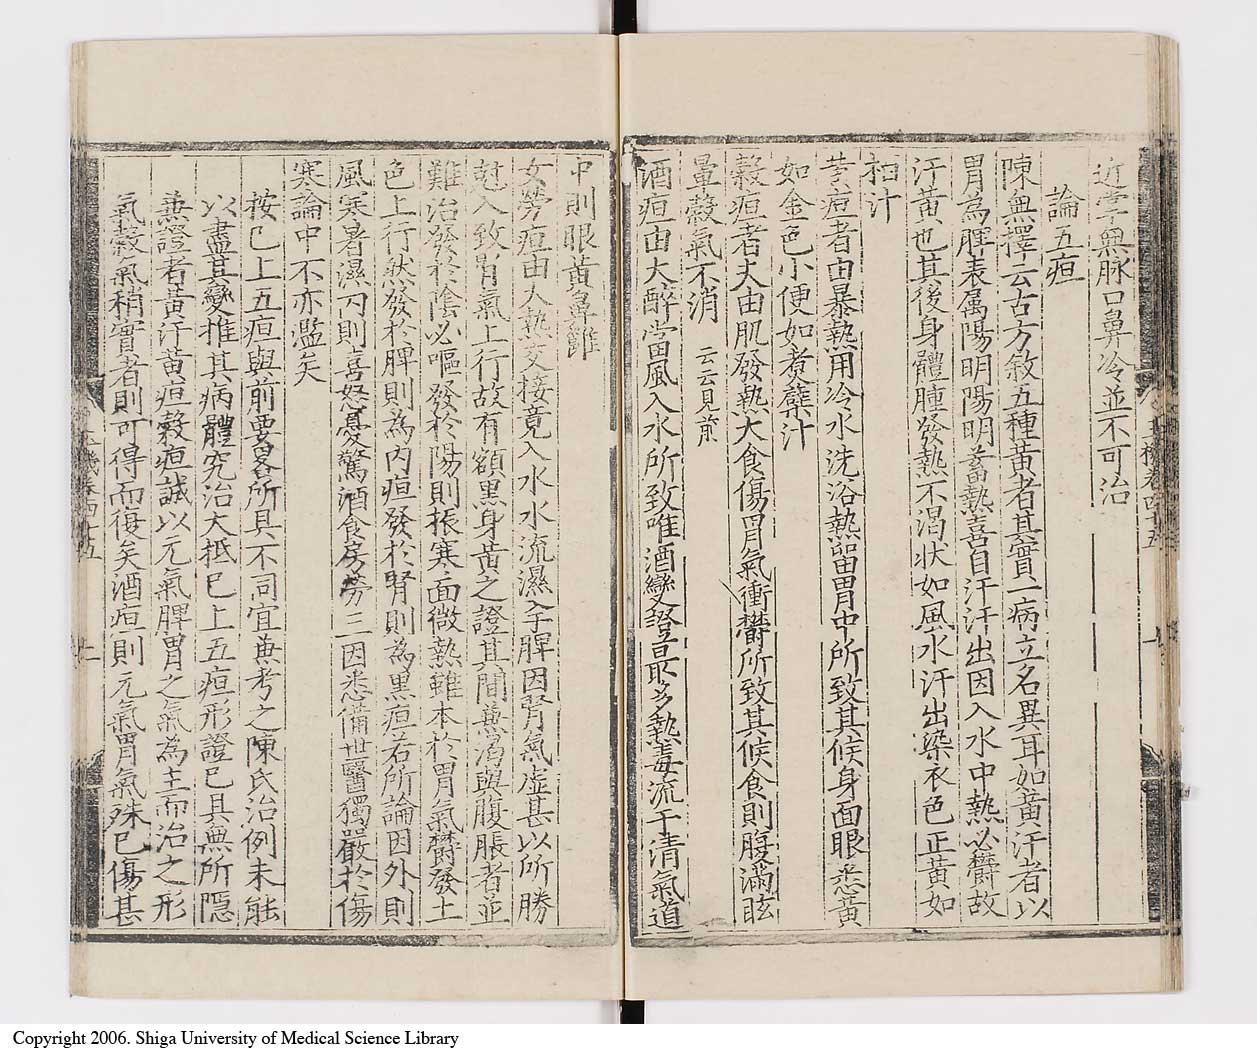 近掌與脉口鼻冷並不可治
論五疸
陳無擇云古方敘五種黃者其實一病立名異耳如黃汗者以
胃為脾表屬陽明陽明蓄熱喜自汗汗出因入水中熱必欝故
汗黃也其後身體腫發熱不渴狀如風水汗出染衣色正黃如
蘗汁
黃疸者由暴熱用冷水洗浴熱留胃中所致其候身面眼悉黃
如金色小便如煮蘗汁
穀疸者大由肌發熱大食傷胃氣衝欝所致其候食則腹滿眩
暈穀氣不消 云云見前
酒疸由大醉當風入水所致唯酒變證最多熱毒流于清氣道
中則眼黃鼻
女勞疸由大熱交接竟入水水流濕入于脾因腎氣虛甚以所勝
愆入致胃氣上行故有額黑身黃之證其間兼渴與腹脹者並
難治發於陰必嘔發於陽則振寒面微熱雖本於胃氣欝發土
色上行然發於脾則為內疸發於腎則為黑疸若所論因外則
風寒暑濕內則喜怒憂驚酒食房勞三因悉備世醫獨嚴於傷
寒論中不亦濫矣
按已上五疸與前要畧所具不同宜兼考之陳氏治例未能
以盡其變推其病體究治大抵已上五疸形證已具無所隱
兼證者黃汗黃疸穀疸誠以元氣脾胃之氣為主而治之形
氣穀氣稍實者則可得而復矣酒疸則元氣胃氣殊已傷甚
Copyright 2006. Shiga University of Medical Science Library